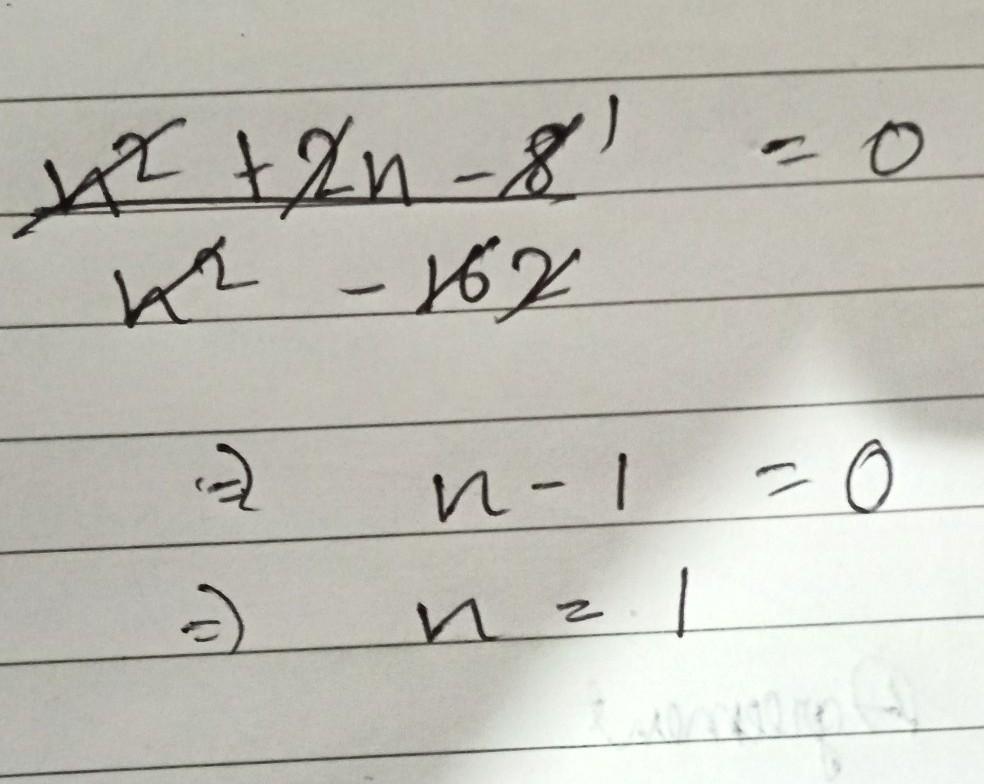 n² + 2n - 8 1 = 0
n² - 16 2
⇒ n - 1 = 0
⇒ n = 1